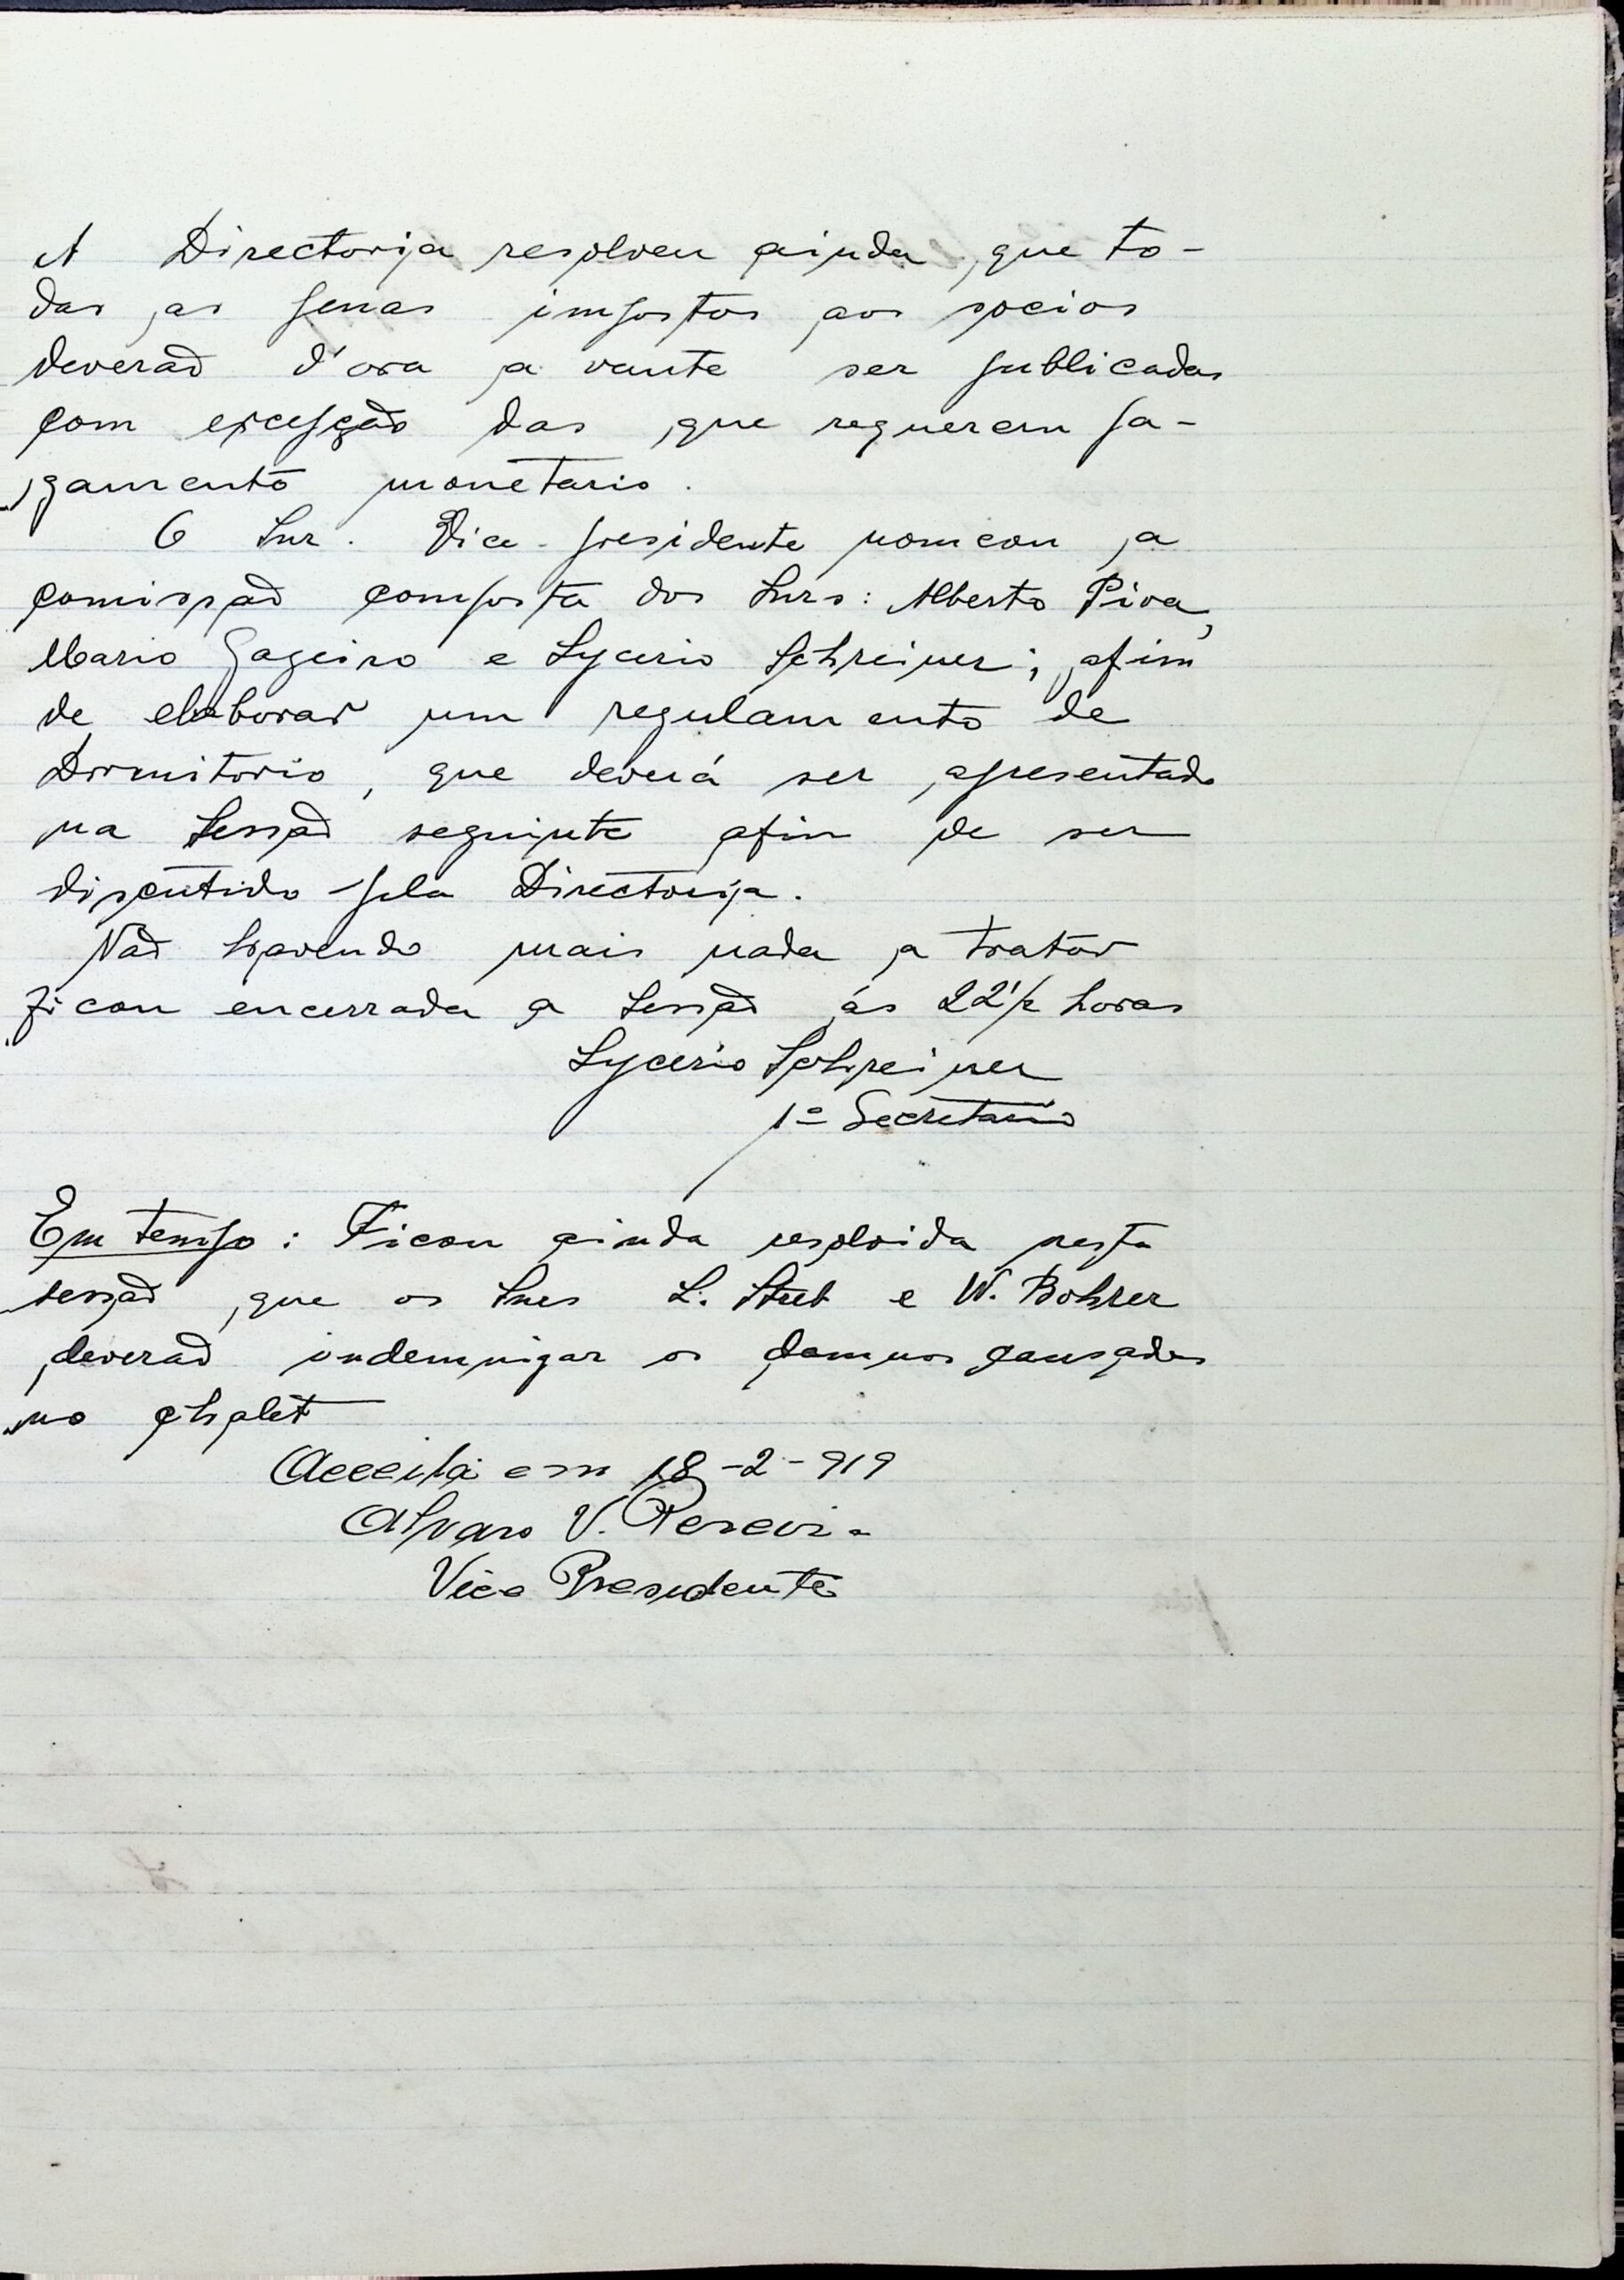 A Directoria resolveu ainda, que to-
das as penas impostas aos socios
deverão d'ora a vante ser publicadas
com excepção das que requerem pa-
gamento monetario.
O Snr. Vice-presidente nomeou a
comissão composta dos Snrs: Alberto Piva,
Mario Gageiro e Lycerio Schreiner; afim
de elaborar um regulamento de
Dormitorio, que deverá ser apresentado
na Sessão seguinte afim de ser
discutido pela Directoria.
Não havendo mais nada a tratar
ficou encerrada a Sessão ás 22 1/2 horas
Lycerio Schreiner
1º Secretario
Em tempo: Ficou ainda resolvida nesta
sessão, que os Snrs L. e W. Bohrer
deverão indemnizar os damnos causados
no chalet
Acceita em 18-2-919
Alvaro V. Pereira
Vice Presidente